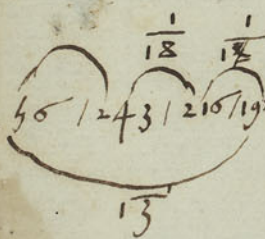 1/18 1/18
56 12 43 12 16 19
1/13